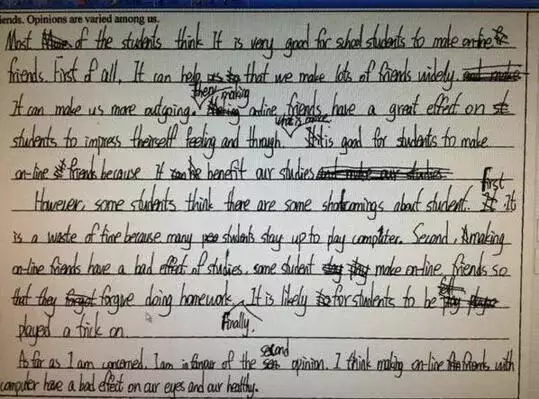 iends. Opinions are varied among us.
Most of the students think It is very good for school students to make on-line
friends. First of all, It can help us that we make lots of friends widely.
It can make us more outgoing. then making on-line friends have a great effect on
students to impress theirself feeling and through. what is more It is good for students to make
on-line friends because it benefit our studies
However, some students think there are some shortcomings about student. First It
is a waste of time because many students stay up to play computer. Second, making
on-line friends have a bad effect of studies, some student make on-line friends so
that they forgive doing homework. It is likely for students to be
played a trick on. Finally.
As far as I am concerned, I am in favour of the second opinion. I think making on-line friends with
computer have a bad effect on our eyes and our healthy.